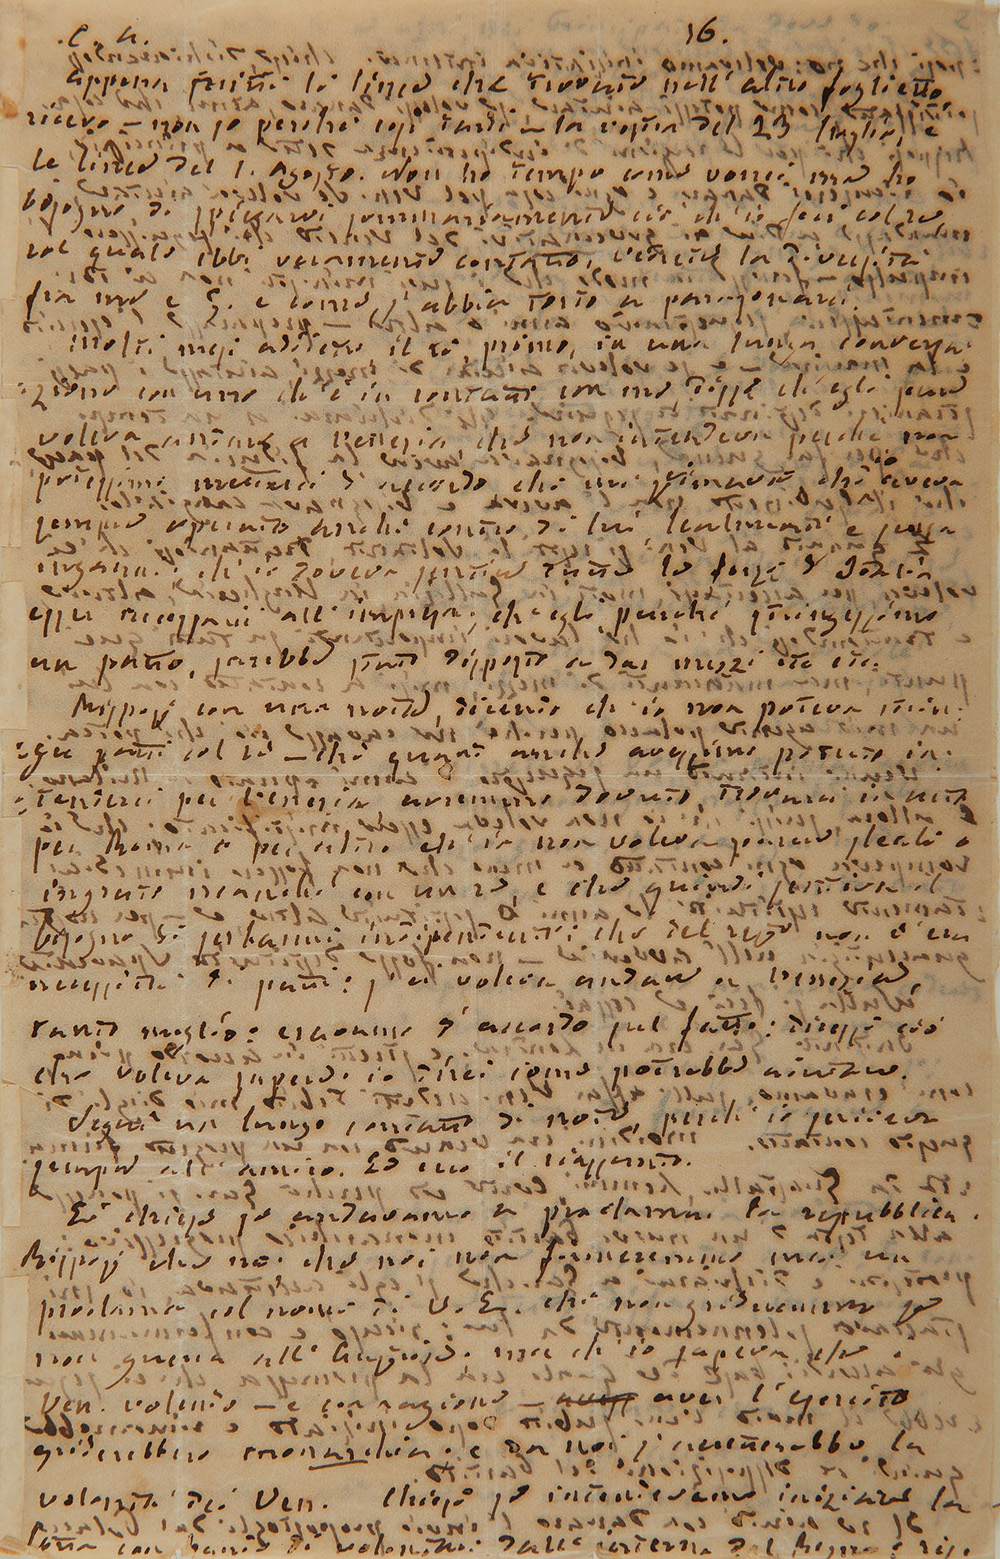 C. A. 16.
Appena finite le linee che troverete nell' altro foglietto,
ricevo – non so perché così tardi – la vostra del 23 luglio, e
le linee del 1. Agosto. Non ho tempo come vorrei ma ho
bisogno di spiegarvi sommariamente ciò ch' io feci colre
col quale ebbi veramente contatto, perché la diversità
fra me e G. e come s' abbia torto a paragonarci.
Molti mesi addietro il re, primo, in una lunga conversa-
zione con uno ch' è in contatto con me, disse ch' egli pure
voleva andare a Venezia, che non intendeva perché non
potessimo metterci d' accordo che mi stimava, che aveva
sempre operato anche contro di lui lealmente e senza
inganni: ch' io doveva sentire tutte le forze d' Italia
esser necessarie all' impresa; ch' egli, purché stringessimo
un patto, sarebbe stato disposto a dar mezzi etc. etc.
Risposi con una nota, dicendo ch' io non poteva strin-
ger patti col re – che quand' anche avessimo potuto in-
tenderci per Venezia avremmo dovuto trovarci in urto
per Roma e per altro ch' io non voleva parere sleale o
ingrato neanche con un re, e che quindi sentiva il
bisogno di serbarmi indipendente: che del resto non v'era
necessità di patti: s' ei voleva andare a Venezia,
tanto meglio: eravamo d' accordo sul fatto: dicesse ciò
che voleva sapere: io direi come potrebbe aiutare.
Seguì un lungo contatto di note, perch' io scriveva
sempre all' amico. Ed ecco il riassunto.
Ei chiese se andavamo a proclamar la repubblica.
Risposi che no: che noi non firmeremmo mai un
proclama col nome di V. E. che non grideremmo se
non guerra all' Austria. ma ch' io sapeva che i
Ven. volendo – e con ragione – aver l' esercito
griderebbero monarchia: e da noi s' accetterebbe la
volontà dei Ven. Chiese se intendevamo iniziare la
lotta con bande di volontari dall' interno del Regno: ris-